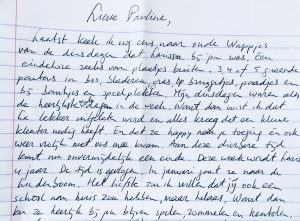 Lieve Pauline,
Laatst keek ik nog eens naar oude Wappjes
van de dinsdagen dat hansson bij jou was. Een
eindeloze reeks van plaatjes buiten. 3, 4 of 5 gezonde
peuters in bos, klederen, gras op bruggetjes, paadjes en
bij boompjes en speelplekken. Mijn dinsdagen waren altijd
de heerlijkste dagen in de week. Want dan wist ik dat
ze lekker uitgelaten werd en alles kreeg dat een kleine
kleuter nodig heeft. En dat ze happy naar je toeging én ook
weer vrolijk met ons mee kwam. Aan deze dierbare tijd
komt nu onvermijdelijk een einde. Deze week wordt
4 jaar. De tijd is gevlogen. In januari gaat ze naar de
. Het liefste zou ik willen dat jij ook een
school aan huis zou hebben, maar helaas. Want dan
kon ze heerlijk bij jou blijven spelen, rommelen en keutelen